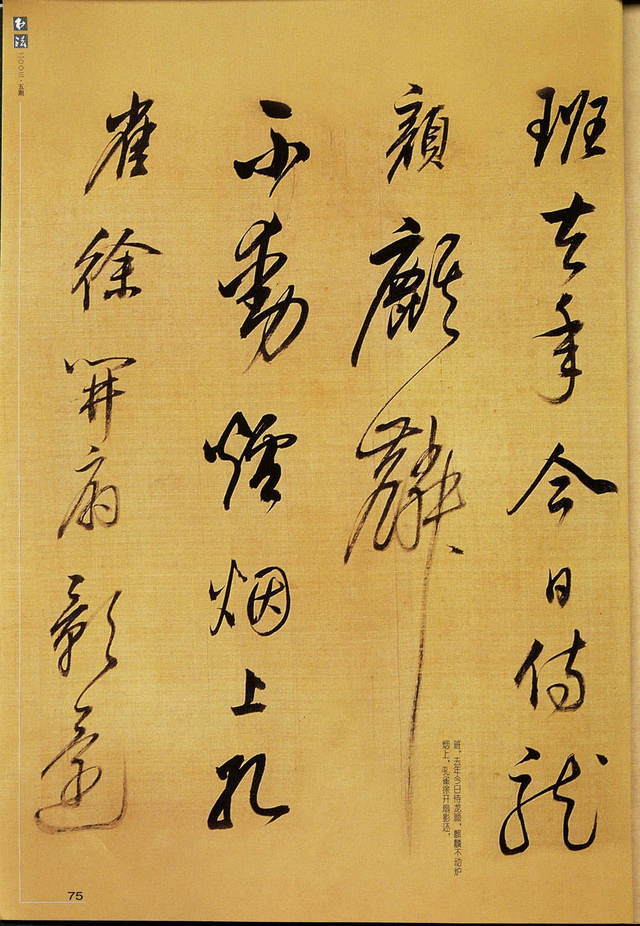 班去年今日侍龙
颜麒麟
不动炉烟上孔
雀徐开扇影还
班，去年今日侍龙颜，麒麟不动炉
烟上，孔雀徐开扇影还，
书法
二〇〇三·五期
75